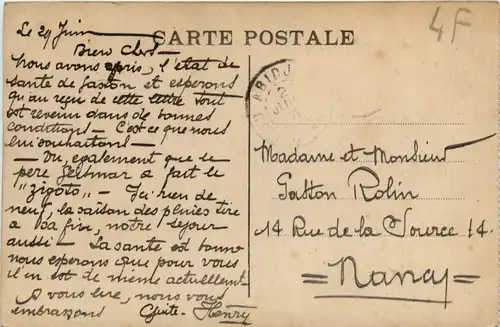 Le 29 Juin
4F
Bien Chers —
CARTE POSTALE
Nous avons appris, l'état de
santé de Gaston et espérons
qu'au reçu de cette lettre tout
est revenu dans de bonnes
conditions — C'est ce que nous
lui souhaitons —
— Vu, également que le
père a fait le
"zigoto" — Ici rien de
neuf, la saison des pluies tire
à sa fin, notre séjour
aussi — La santé est bonne
nous espérons que pour vous
il en est de même actuellement.
A vous lire, nous vous
embrassons Henry
ABIDJ
Madame et Monsieur
Gaston Rolin
14 Rue de la Source 14.
= Nancy =